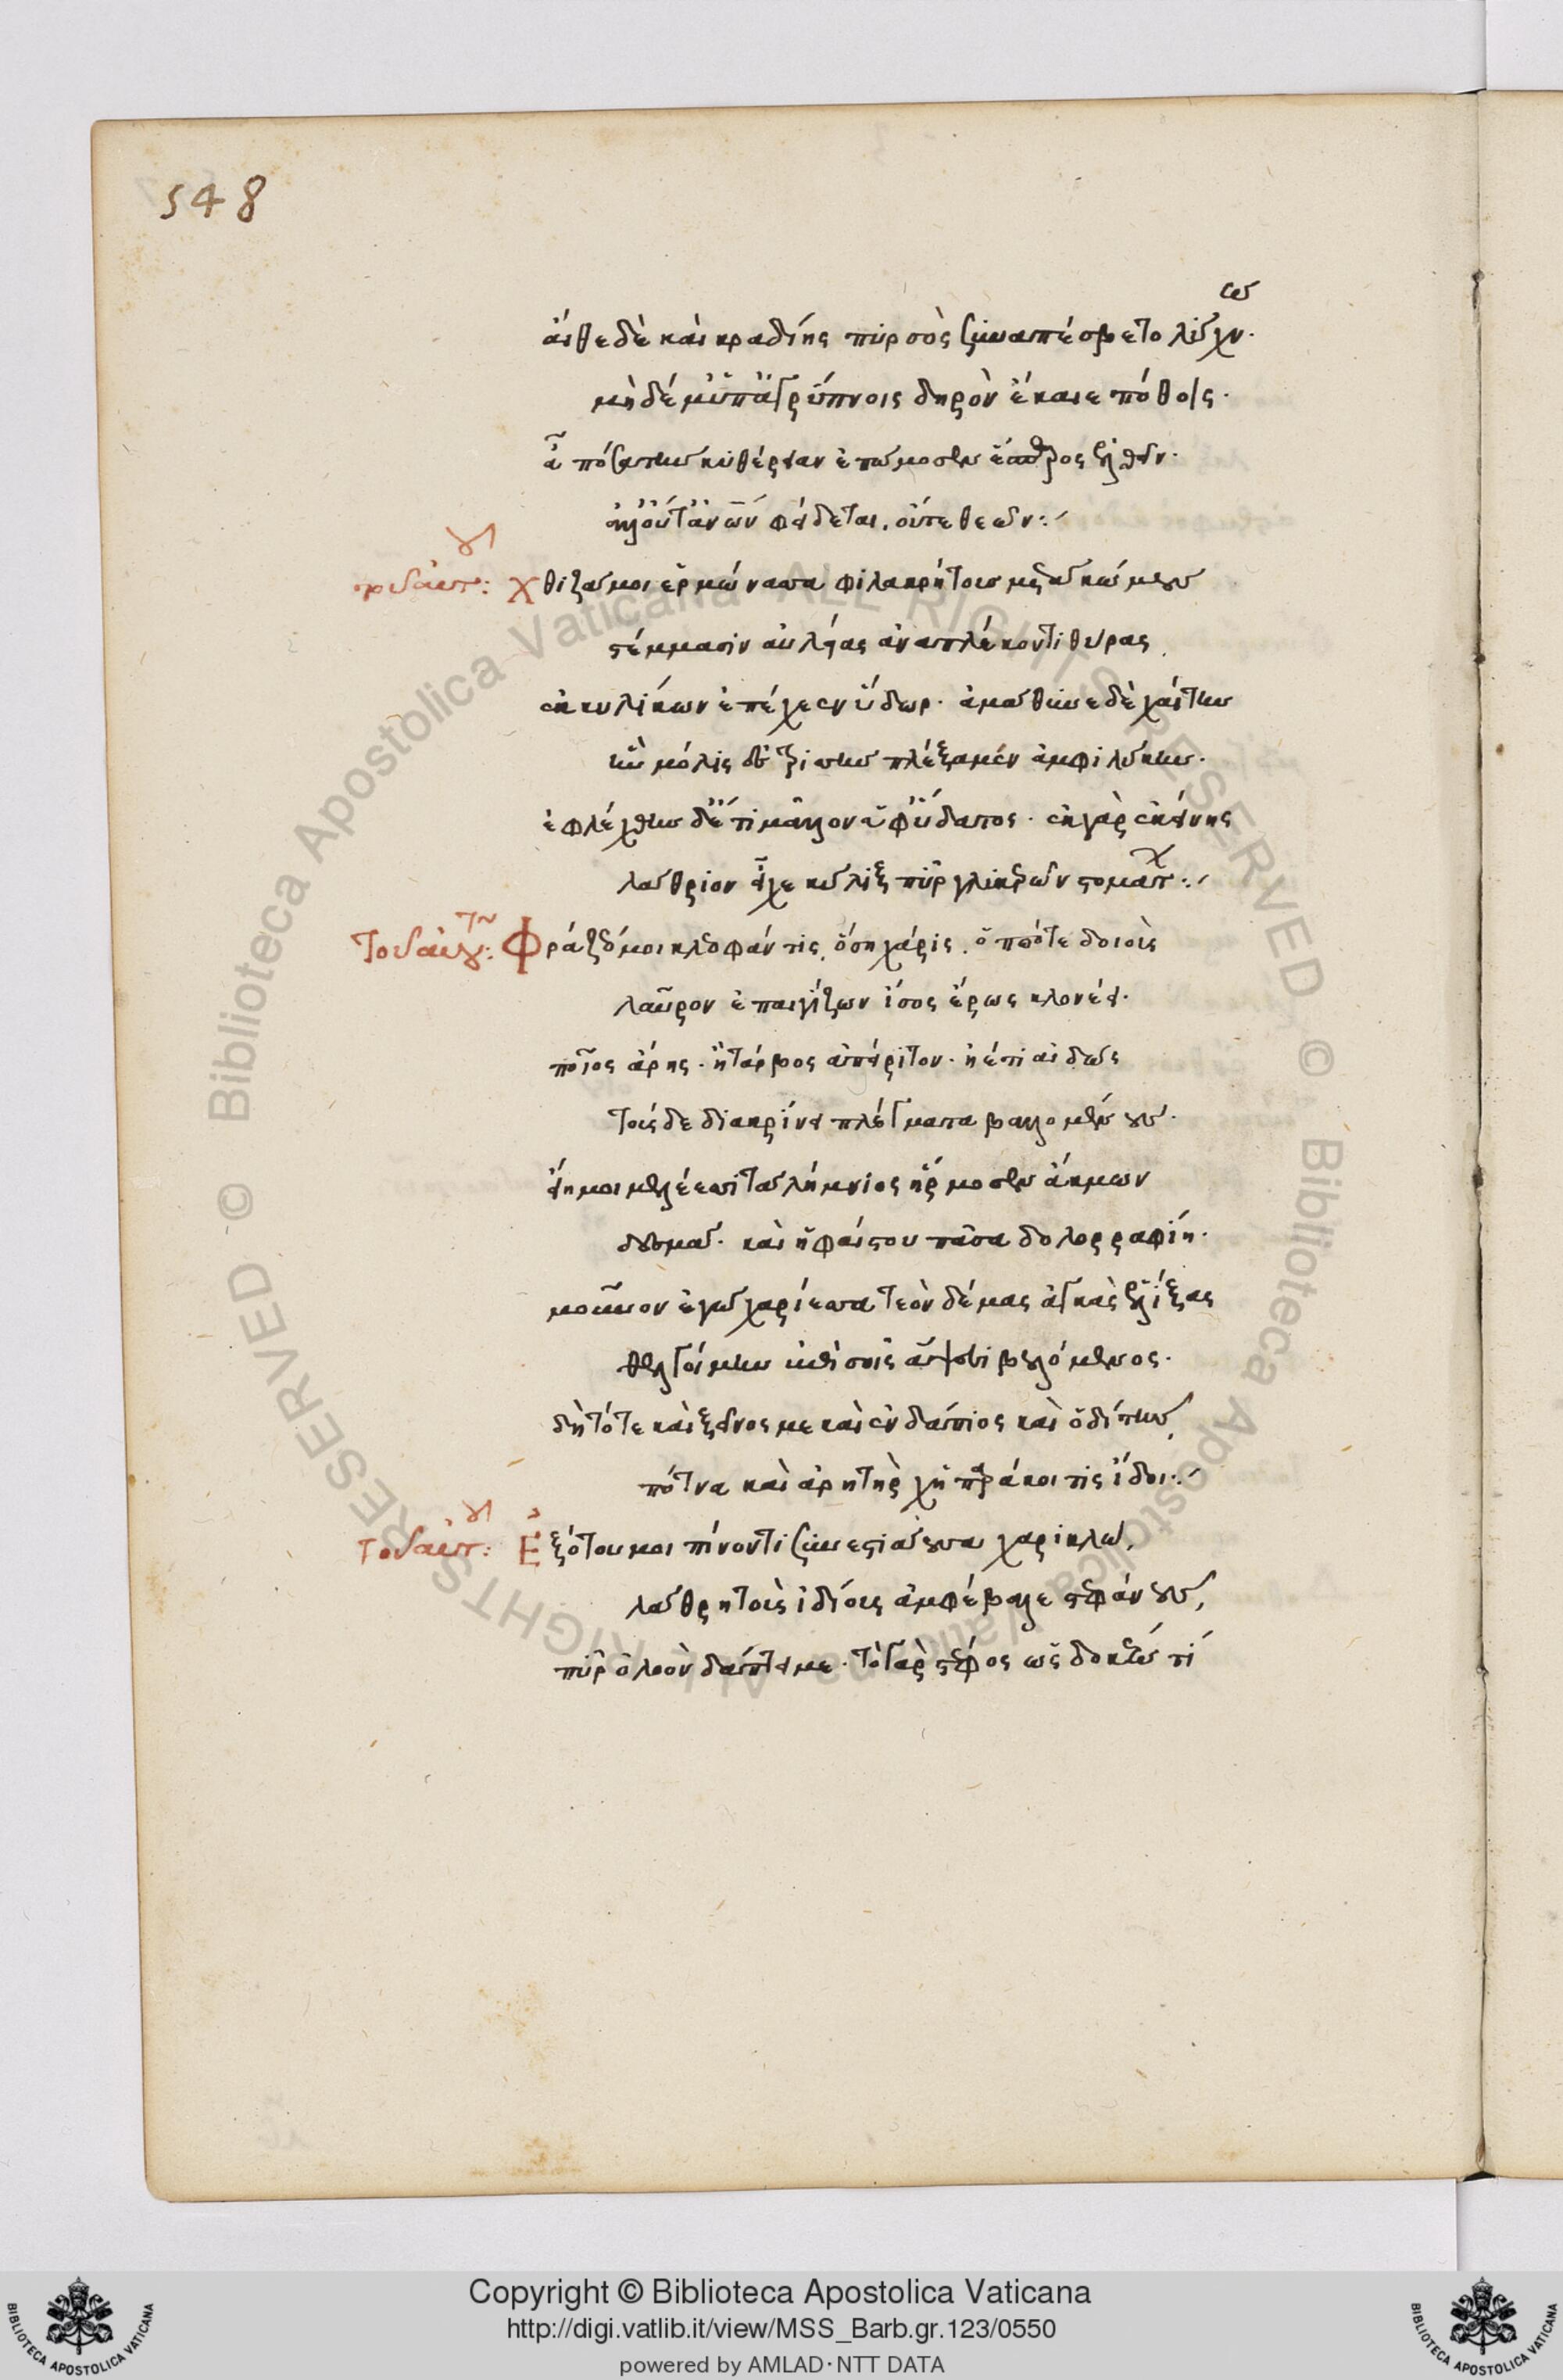 548
αἴθε δὲ καὶ κραδίης πυρσὸς συναπέσβετο λύχνω.
μηδέ μ' ὑπ' ἀγρύπνοις δηρὸν ἔκαιε πόθοις.
ἆ πόσα τὴν κυθέρειαν ἐπώμοσεν ἕσπερος ἐλθεῖν.
ἀλλ' οὔτ' ἀνδρῶν φείδεται. οὔτε θεῶν:
τοῦ αὐτοῦ: χθιζά μοι ἑρμώνασσα φιλακρήτους μετὰ κώμους
στέμμασιν αὐλείας ἀναπλέκοντι θύρας
ἐκ κυλίκων ἐπέχευεν ὕδωρ. ἀμάθυνε δὲ χαίτην
ἣν μόλις ἐς τρισσὴν πλέξαμεν ἀμφιλύκην.
ἐφλέχθην δ' ἔτι μᾶλλον ὑφ' ὕδατος. ἐκ γὰρ ἐκείνης
λάθριον εἶχε κύλιξ πῦρ γλυκερῶν στομάτων:
Τοῦ αὐτοῦ: Φράζεό μοι κλεοφάντις, ὅση χάρις, ὁππότε δοιοὺς
λαῦρον ἐπαιγίζων ἶσος ἔρως κλονέει.
ποῖος ἄρης. ἢ τάρβος ἀπείριτον. ἠέ τις αἰδὼς
τούσδε διακρίνει πλέγματα βαλλομένους.
εἴη μοι μελέεσσι τὰ λήμνιος ἥρμοσεν ἄκμων
δεσμά. καὶ ἡφαίστου πᾶσα δολορραφίη.
μοῦνον ἐγὼ χαρίεσσα τεὸν δέμας ἀγκὰς ἑλίξας
θελγοίμην ἐπὶ σοῖς ἅψεσι βουλόμενος.
δὴ τότε καὶ ξεῖνός με καὶ ἐνδάπιος καὶ ὁδίτης,
πότνα καὶ ἀρητὴρ χἠ παράκοιτις ἴδοι:
Τοῦ αὐτοῦ: Ἐξότου μοι πίνοντι συνεστιάουσα χαρικλὼ,
λάθρη τοὺς ἰδίους ἀμφέβαλε στεφάνους,
πῦρ ὀλοὸν δάπτει με. τὸ γὰρ στέφος ὡς δοκέω τί
Copyright © Biblioteca Apostolica Vaticana
http://digi.vatlib.it/view/MSS_Barb.gr.123/0550
powered by AMLAD·NTT DATA